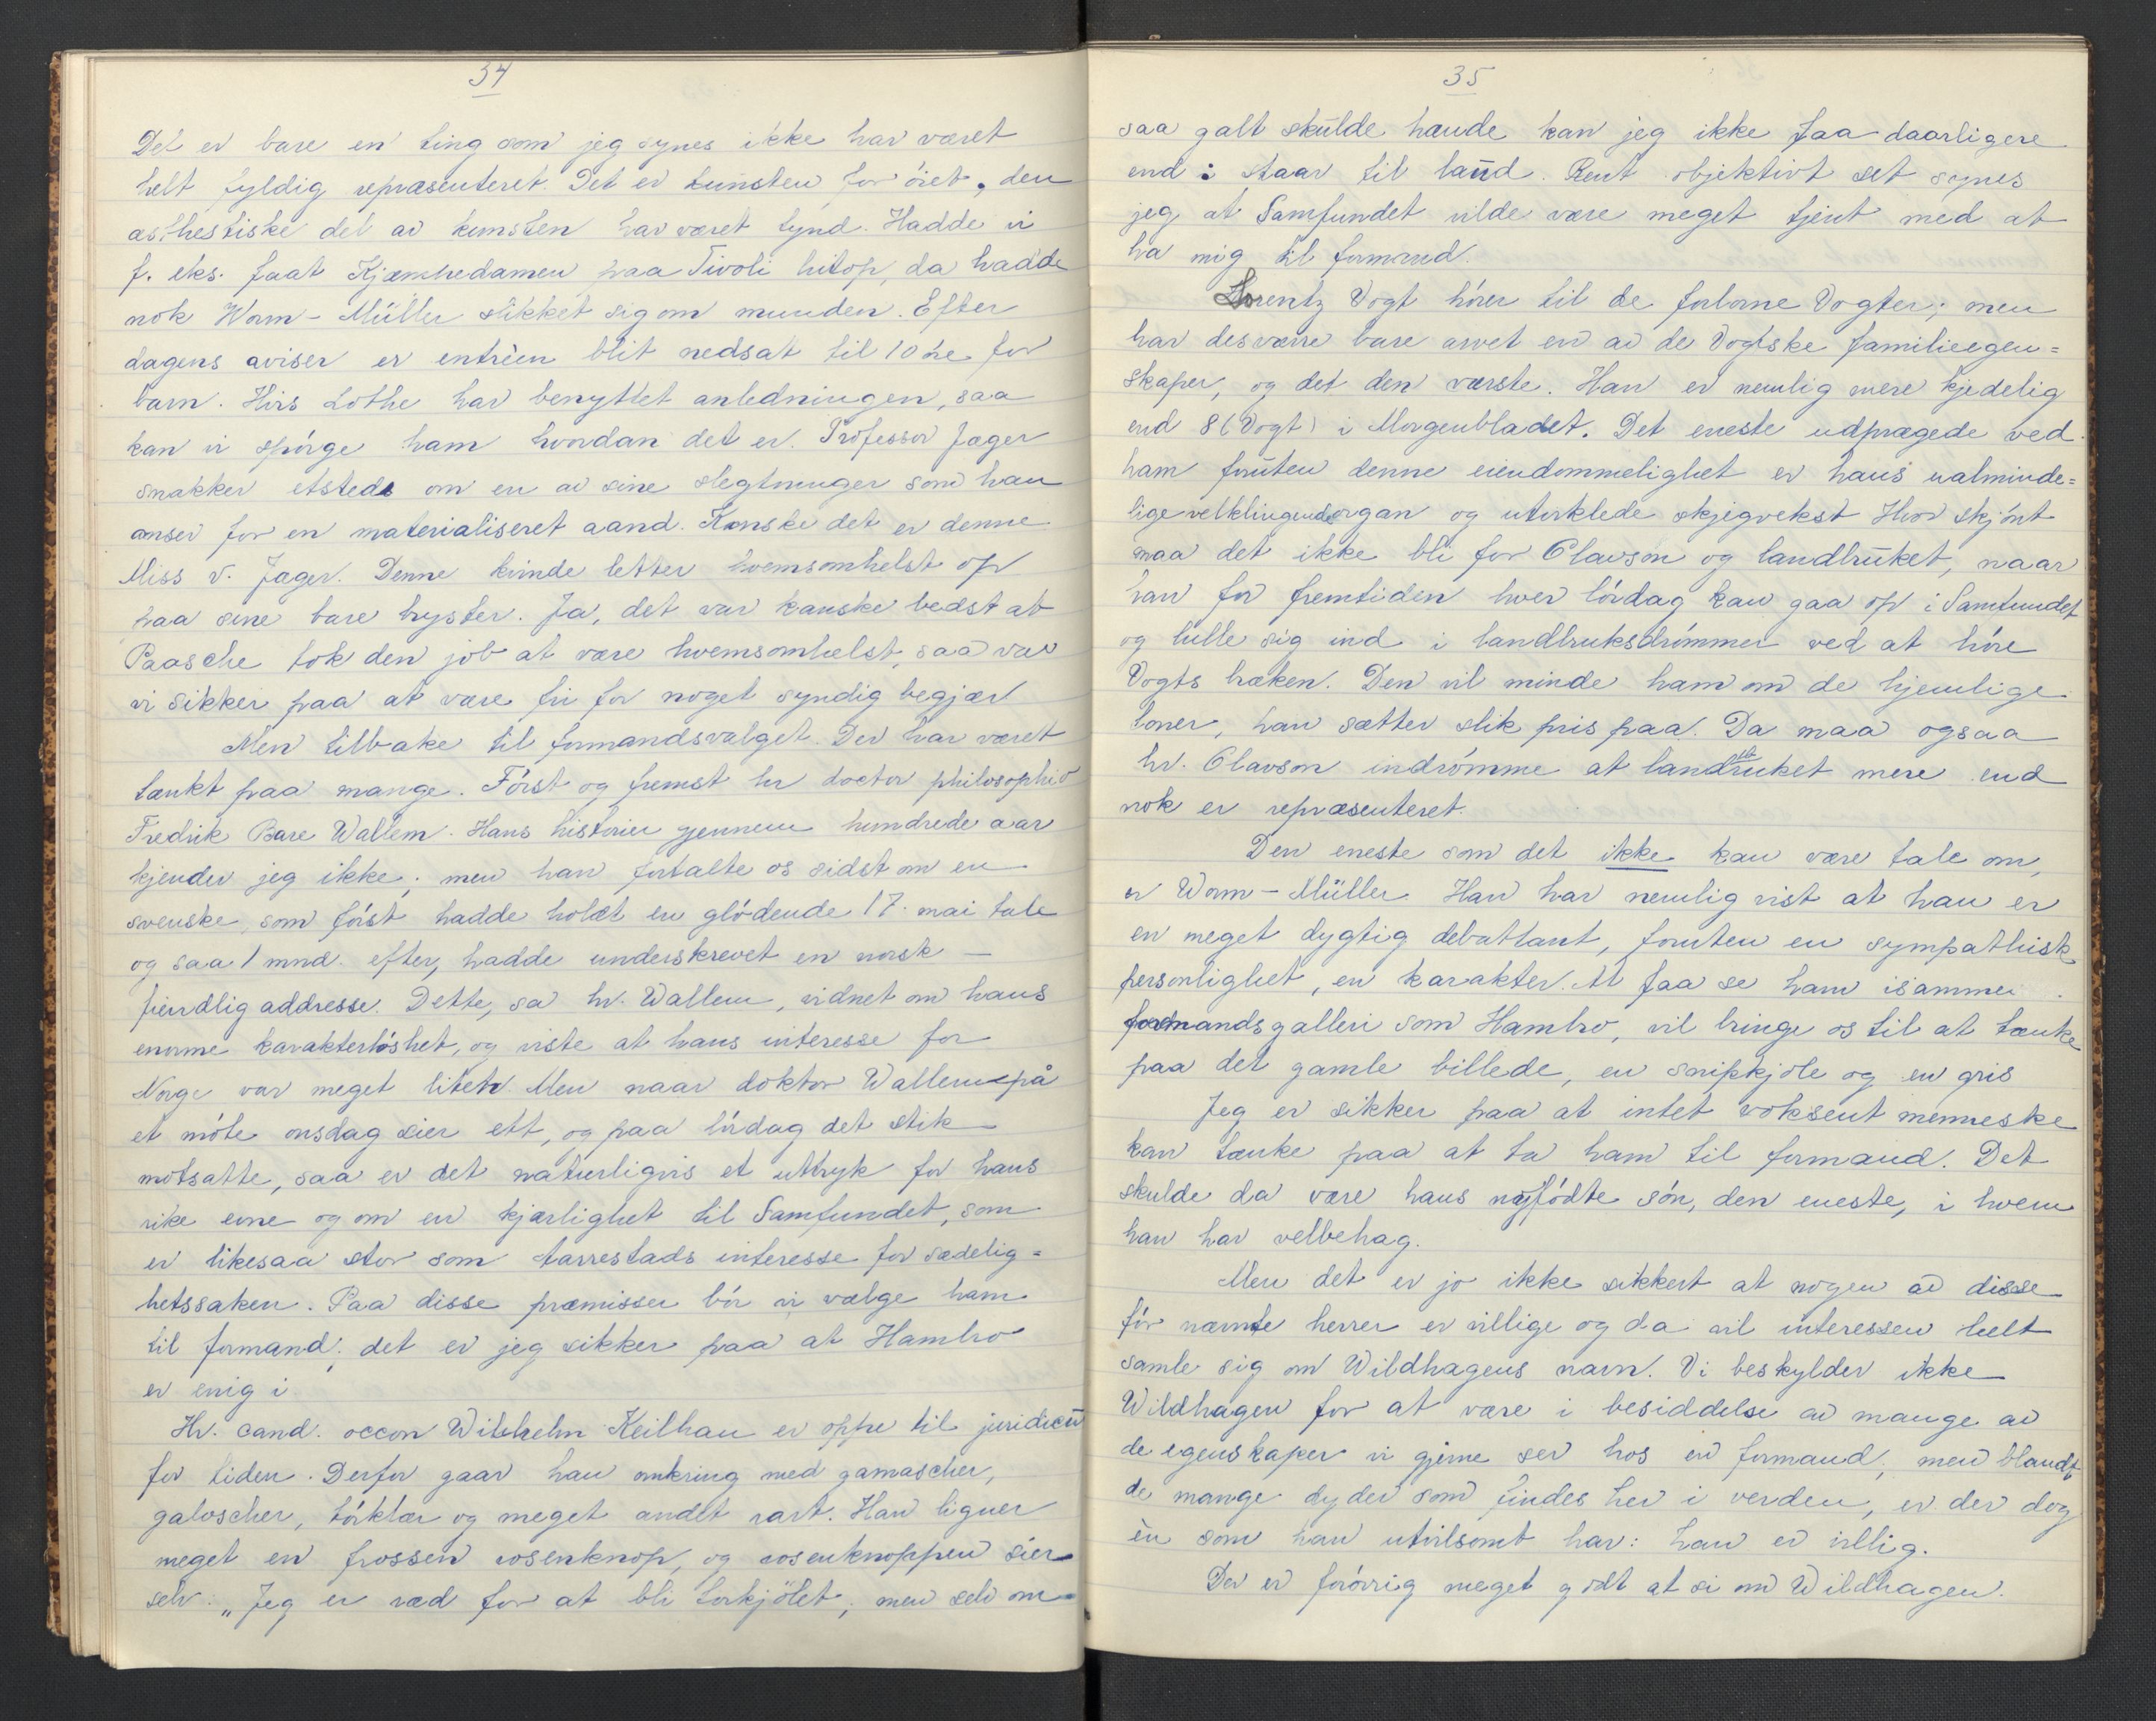 34
Det er bare en ting som jeg synes ikke har været
helt fyldig repræsenteret. Det er kunsten for öiet, den
æsthestiske del av kunsten har været tynd. Hadde vi
f. eks. faat Kjæmpedamen paa Tivoli hitop, da hadde
nok Worm-Müller slikket sig om munden. Efter
dagens aviser er entrèen blit nedsat til 10 öre for
barn. Hvis Lothe har benyttet anledningen, saa
kan vi spörge ham hvordan det er. Professor Jæger
snakker etsteds om en av sine slegtninger som han
anser for en materialiseret aand. Kanske det er denne
Miss v. Jager. Denne kvinde letter hvemsomhelst op
paa sine bare bryster. Ja, det var kanske bedst at
Paasche tok den job at være hvemsomhelst, saa var
vi sikker paa at være fri for noget syndig begjær
Men tilbake til formandsvalget. Der har været
tænkt paa mange. Först og fremst hr doctor philosophio
Fredrik Bare Wallem. Hans historier gjennem hundrede aar
kjender jeg ikke; men han fortalte os sidst om en
svenske, som först hadde holdt en glödende 17. mai tale
og saa 1 mnd. efter, hadde underskrevet en norsk-
fiendlig addresse. Dette, sa hr. Wallem, vidnet om hans
enorme karakterlöshet, og viste at hans interesse for
Norge var meget liten. Men naar doktor Wallem på
et möte onsdag sier ett, og paa lördag det stik
motsatte, saa er det naturligvis et uttryk for hans
rike evne og om en kjærlighet til Samfundet, som
er likesaa stor som Tarrestads interesse for sædelig=
hetssaken. Paa disse præmisser bör vi vælge ham
til formand; det er jeg sikker paa at Hambro
er enig i
Hr. cand. occon Wilhelm Keilhau er oppe til juridicum
for tiden. Derfor gaar han omkring med gamascher,
galoscher, törklær og meget andet rart. Han ligner
meget en frossen rosenknop, og rosenknoppen sier
selv: „Jeg er ræd for at bli forkjölet, men selv om
35
saa galt skulde hænde kan jeg ikke faa daarligere
end: staar til laud. Rent objektivt set synes
jeg at Samfundet vilde være meget tjent med at
ha mig til formand.
Lorentz Vogt hörer til de forlorne Vogter; men
har desværre bare arvet en av de Vogtske familieegen=
skaper, og det den værste. Han er nemlig mere kjedelig
end 8 (Vogt) i Morgenbladet. Det eneste udprægede ved
ham foruten denne eiendommelighet er hans ualminde=
lige velklingende organ og utvklede skjegvekst Hvor skjönt
maa det ikke bli for Olavson og landbruket, naar
han for fremtiden hver lördag kan gaa op i Samfundet
og lulle sig ind i landbruksdrömmer ved at höre
Vogts bræken. Den vil minde ham om de hjemlige
toner, han sætter slik pris paa. Da maa ogsaa
hr. Olavson indrömme at landbruket mere end
nok er repræsenteret.
Den eneste som det ikke kan være tale om,
er Worm-Müller. Han har nemlig vist at han er
en meget dygtig debattant, foruten en sympathisk
personlighet, en karakter. At faa se ham isammei
formandsgalleri som Hambro, vil bringe os til at tænke
paa det gamle billede, en snipkjole og en gris
Jeg er sikker paa at intet voksent menneske
kan tænke paa at ta ham til formand. Det
skulde da være hans nyfödte sön, den eneste, i hvem
han har velbehag.
Men det er jo ikke sikkert at nogen av disse
för nævnte herrer er villige og da vil interessen helt
samle sig om Wildhagens navn. Vi beskylder ikke
Wildhagen for at være i besiddelse av mange av
de egenskaper vi gjerne ser hos en formand; men blandt
de mange dyder som findes her i verden, er der dog
èn som han utvilsomt har: han er villig.
Der er forövrig meget godt at si om Wildhagen.